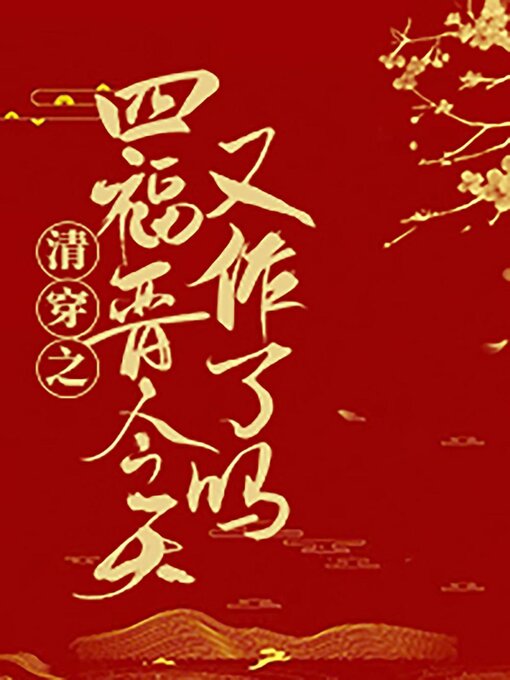 清穿之
四福晋今天
又作了吗